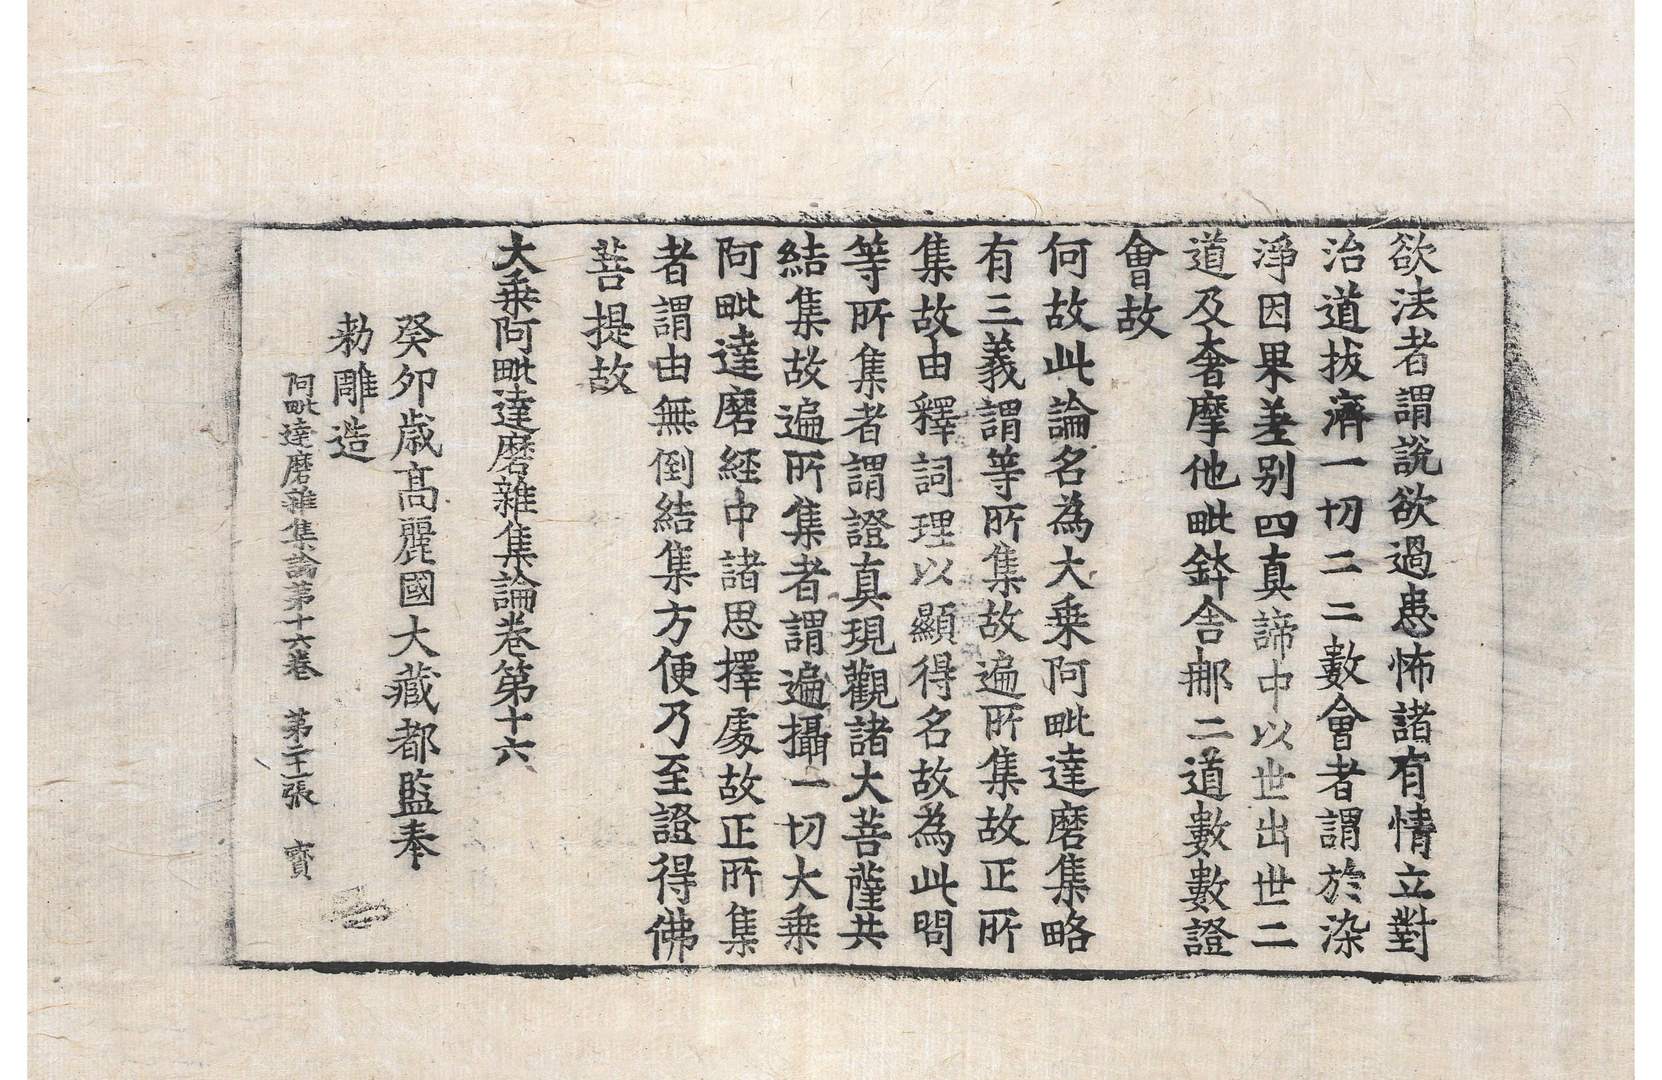 欲法者謂說欲過患怖諸有情立對
治道拔濟一切二二數會者謂於染
淨因果差别四真諦中以世出世二
道及奢摩他毗鉢舍那二道數數證
會故
何故此論名為大乗阿毗達磨集略
有三義謂等所集故遍所集故正所
集故由釋詞理以顯得名故為此問
等所集者謂證真現觀諸大菩薩共
結集故遍所集者謂遍攝一切大乗
阿毗達磨経中諸思擇處故正所集
者謂由無倒結集方便乃至證得佛
菩提故
大乗阿毗達磨雜集論卷第十六
癸卯歳髙麗國大藏都監奉
勅雕造
阿毗達磨雜集論第十六卷 第二十一張 賓